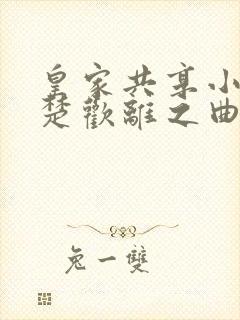 皇家共享小
楚歡離之曲
兔一雙